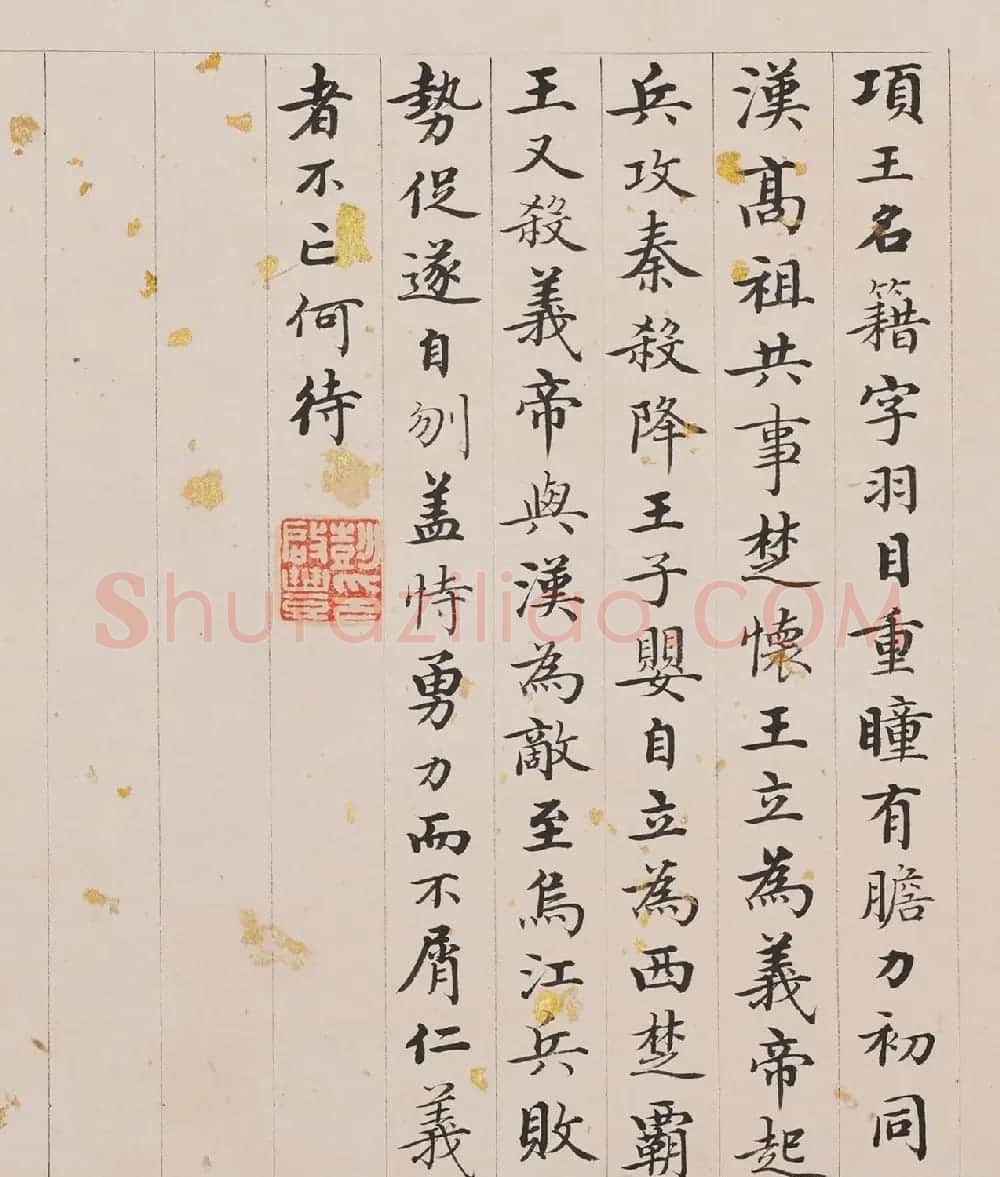 項王名籍字羽目重瞳有膽力初同
漢髙祖共事楚懷王立為義帝起
兵攻秦殺降王子嬰自立為西楚霸
王又殺義帝與漢為敵至烏江兵敗
勢促遂自刎盖恃勇力而不屑仁義
者不亡何待
Shufaziliao.COM